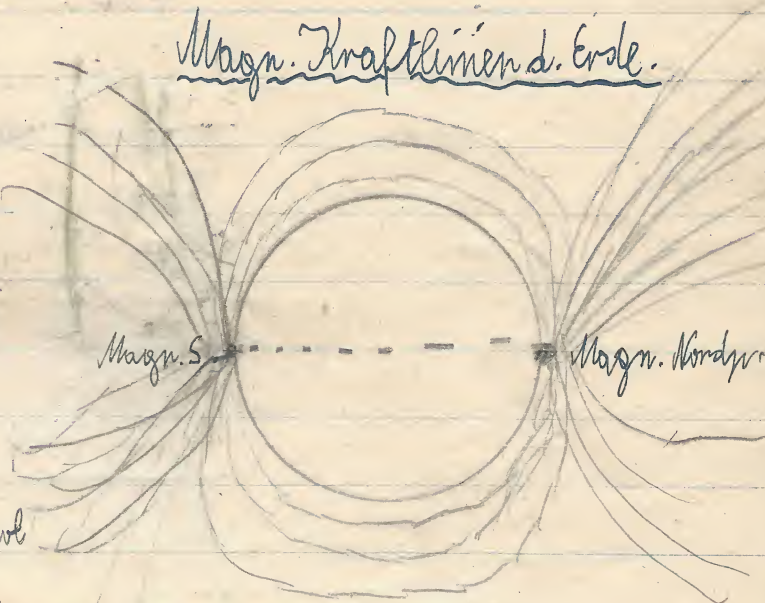 Magn. Kraftlinien d. Erde.
Magn. S
Magn. Nordp.